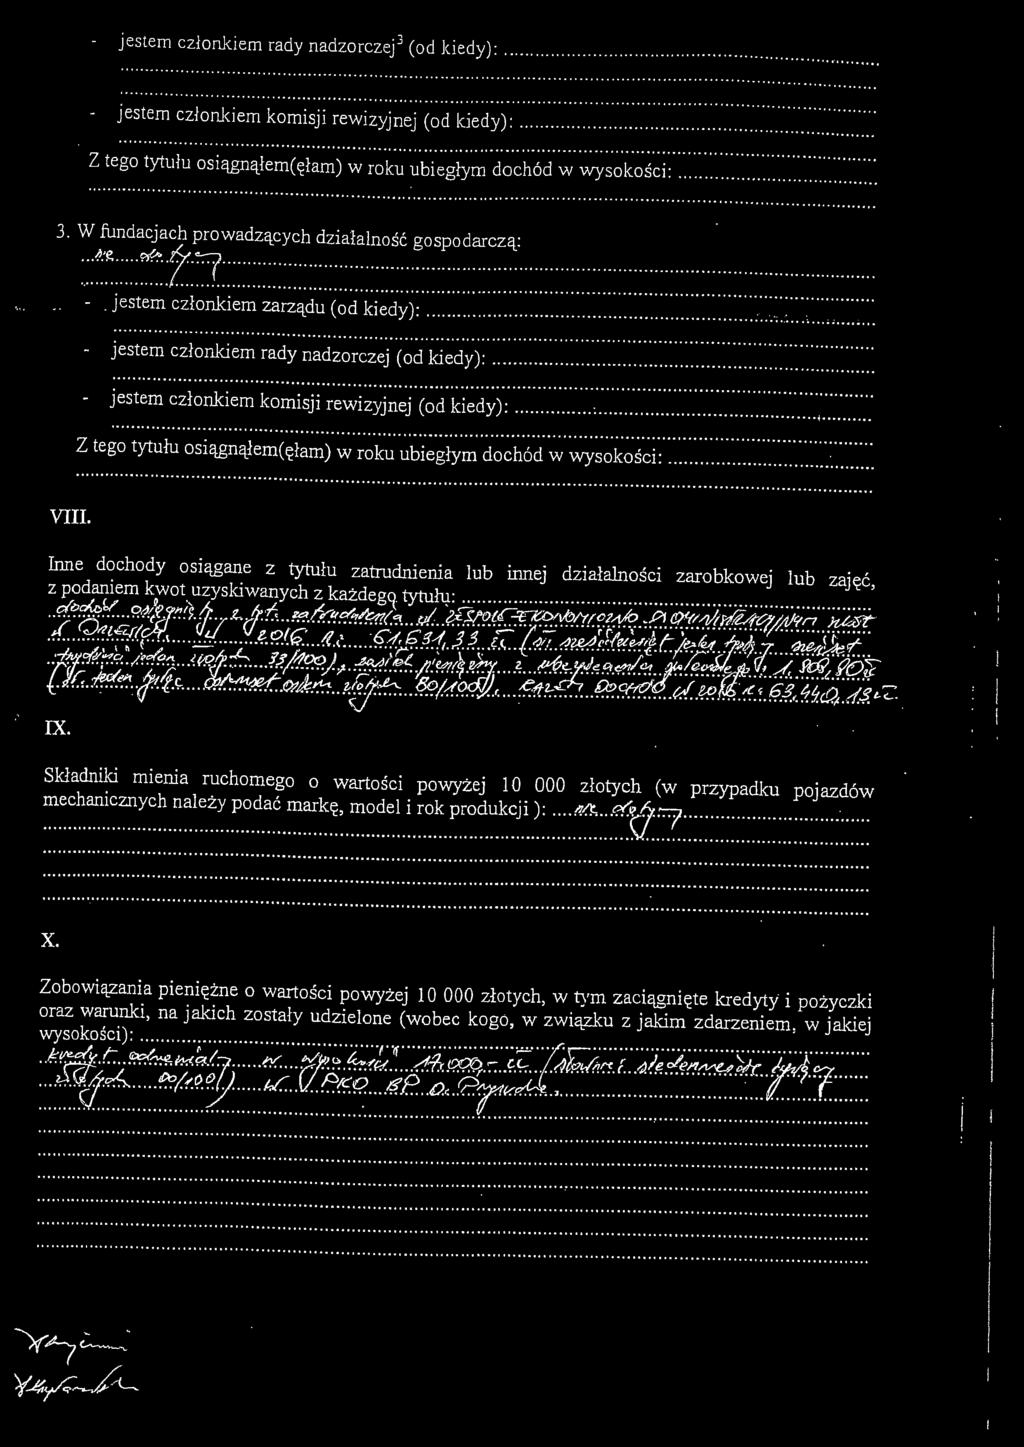 - jestem członkiem rady nadzorczej³ (od kiedy):
- jestem członkiem komisji rewizyjnej (od kiedy):
Z tego tytułu osiągnąłem(ęłam) w roku ubiegłym dochód w wysokości:
3. W fundacjach prowadzących działalność gospodarczą:
nie dotyczy
- jestem członkiem zarządu (od kiedy):
- jestem członkiem rady nadzorczej (od kiedy):
- jestem członkiem komisji rewizyjnej (od kiedy):
Z tego tytułu osiągnąłem(ęłam) w roku ubiegłym dochód w wysokości:
VIII.
Inne dochody osiągane z tytułu zatrudnienia lub innej działalności zarobkowej lub zajęć,
z podaniem kwot uzyskiwanych z każdego tytułu:
dochód osiągnięty z tyt. zatrudnienia w ZESPOLE EKONOMICZNO-ADMINISTRACYJNYM
w 2016 R: 61.631,33 zł (sł. sześćdziesiąt jeden tysięcy sześćset
trzydzieści jeden złotych 33/100), zasiłek pieniężny z 1.808,80 zł
(sł. jeden tysiąc osiemset osiem złotych 80/100), RAZEM DOCHÓD w 2016 R: 63.440,13 zł
IX.
Składniki mienia ruchomego o wartości powyżej 10 000 złotych (w przypadku pojazdów
mechanicznych należy podać markę, model i rok produkcji ): nie dotyczy
X.
Zobowiązania pieniężne o wartości powyżej 10 000 złotych, w tym zaciągnięte kredyty i pożyczki
oraz warunki, na jakich zostały udzielone (wobec kogo, w związku z jakim zdarzeniem, w jakiej
wysokości):
kredyt odnawialny w wysokości 17.000,- zł (słownie: siedemnaście tysięcy
złotych 00/100) w PKO BP O.